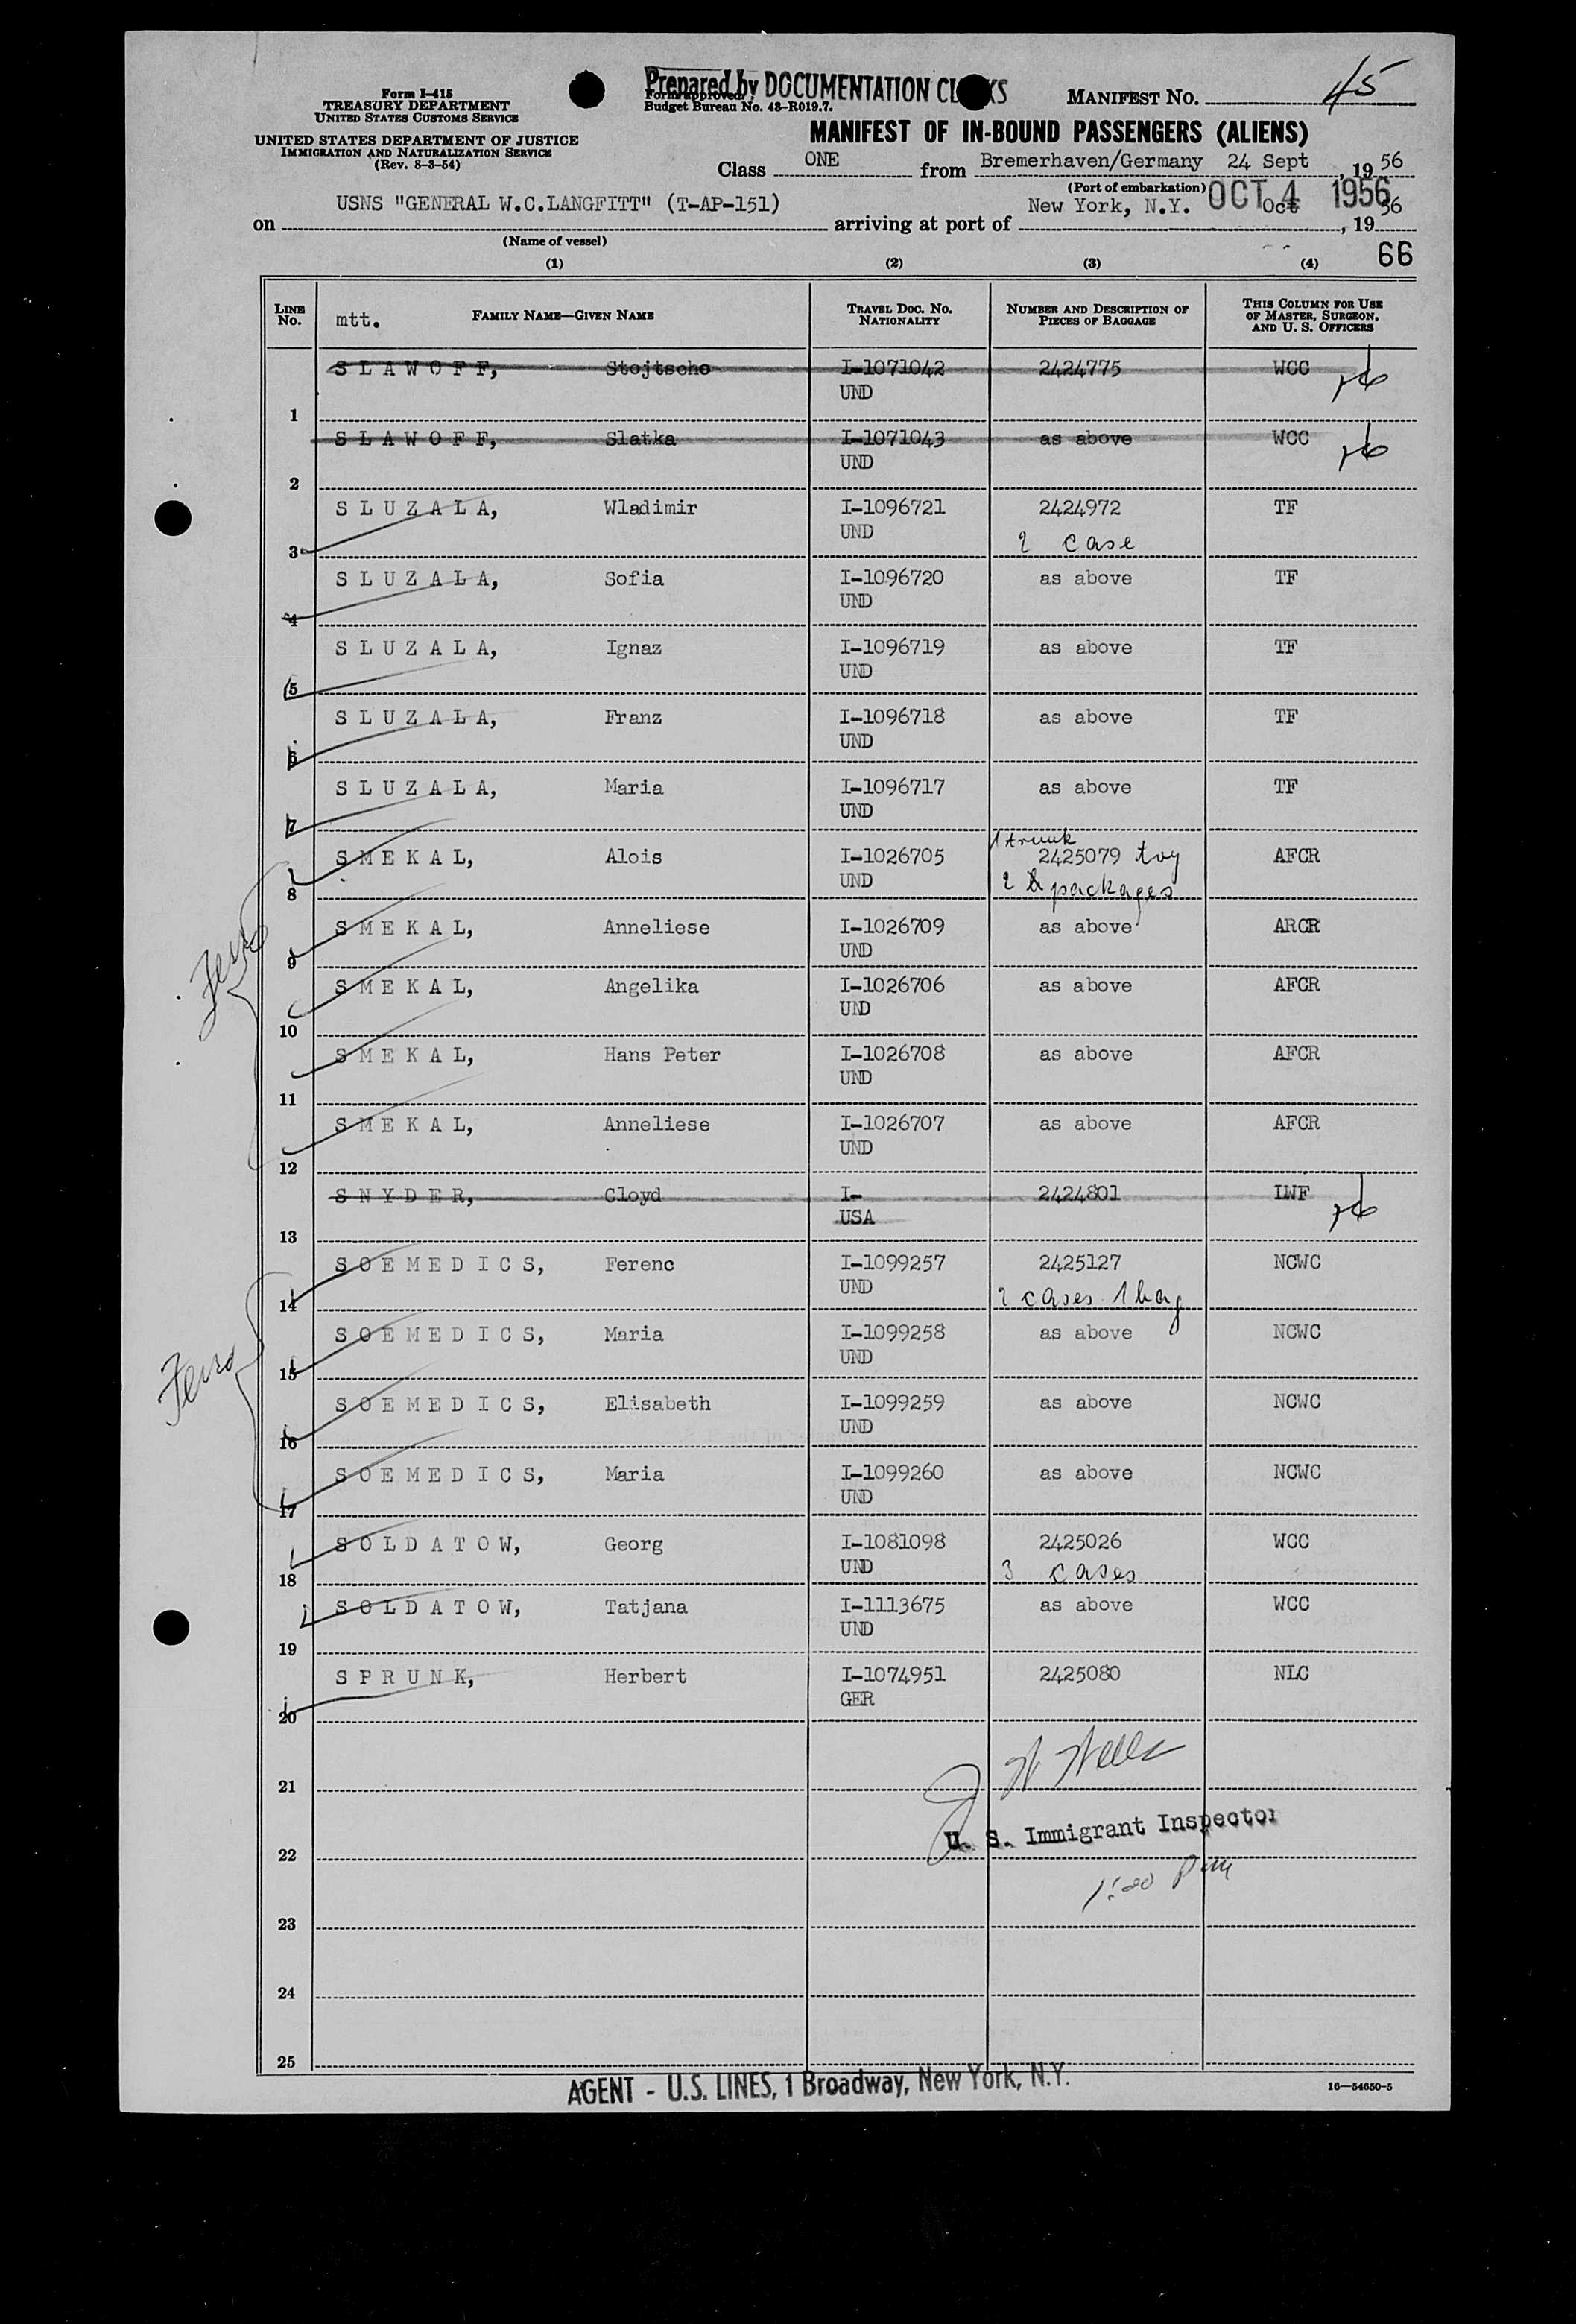 Form I-415
TREASURY DEPARTMENT
UNITED STATES CUSTOMS SERVICE
UNITED STATES DEPARTMENT OF JUSTICE
IMMIGRATION AND NATURALIZATION SERVICE
(Rev. 8-3-54)
Prepared by DOCUMENTATION CL KS
Form approved.
Budget Bureau No. 43-R019.7.
MANIFEST NO. 45
MANIFEST OF IN-BOUND PASSENGERS (ALIENS)
Class ONE from Bremerhaven/Germany 24 Sept, 19 56
(Port of embarkation)
on USNS "GENERAL W.C.LANGFITT" (T-AP-151) arriving at port of New York, N.Y. Oct, 19 56
OCT 4 1956
(Name of vessel)
66
(1) (2) (3) (4)
LINE NO. mtt. FAMILY NAME—GIVEN NAME TRAVEL DOC. NO. NATIONALITY NUMBER AND DESCRIPTION OF PIECES OF BAGGAGE THIS COLUMN FOR USE OF MASTER, SURGEON, AND U. S. OFFICERS
1 SLAWOFF, Stojtscho I-1071042 2424775 WCC
UND
2 SLAWOFF, Slatka I-1071043 as above WCC
UND
3 SLUZALA, Wladimir I-1096721 2424972 TF
UND 2 case
4 SLUZALA, Sofia I-1096720 as above TF
UND
5 SLUZALA, Ignaz I-1096719 as above TF
UND
6 SLUZALA, Franz I-1096718 as above TF
UND
7 SLUZALA, Maria I-1096717 as above TF
UND
1 trunk
8 SMEKAL, Alois I-1026705 2425079 toy AFCR
UND 2 packages
9 SMEKAL, Anneliese I-1026709 as above ARCR
UND
10 SMEKAL, Angelika I-1026706 as above AFCR
UND
11 SMEKAL, Hans Peter I-1026708 as above AFCR
UND
12 SMEKAL, Anneliese I-1026707 as above AFCR
UND
13 SNYDER, Cloyd I- 2424801 LWF
USA
14 SOEMEDICS, Ferenc I-1099257 2425127 NCWC
UND 2 cases 1 bag
15 SOEMEDICS, Maria I-1099258 as above NCWC
UND
16 SOEMEDICS, Elisabeth I-1099259 as above NCWC
UND
17 SOEMEDICS, Maria I-1099260 as above NCWC
UND
18 SOLDATOW, Georg I-1081098 2425026 WCC
UND 3 cases
19 SOLDATOW, Tatjana I-1113675 as above WCC
UND
20 SPRUNK, Herbert I-1074951 2425080 NLC
GER
21
U. S. Immigrant Inspector
22
1:00 PM
23
24
25
AGENT - U.S. LINES, 1 Broadway, New York, N.Y.
16—54650-5